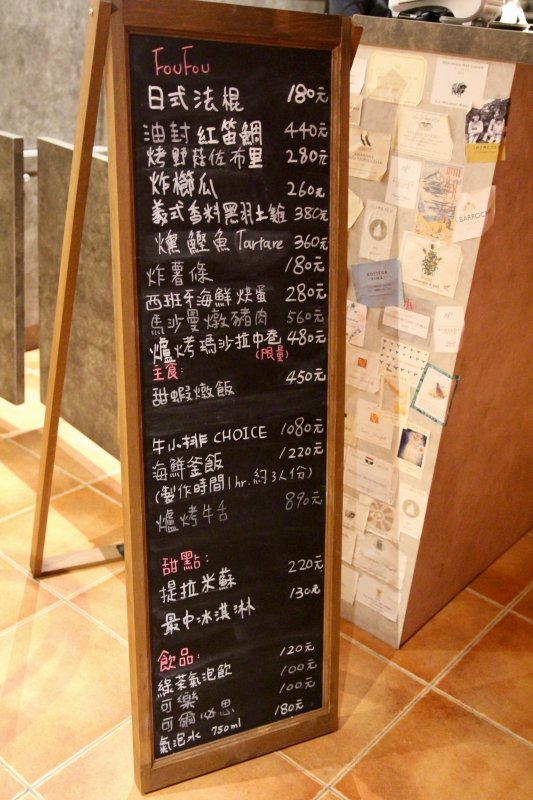 FouFou
日式法棍 180元
油封紅笛鯛 440元
烤野菇佐布里 280元
炸櫛瓜 260元
義式香料黑羽土雞 380元
燻鰹魚Tartare 360元
炸薯條 180元
西班牙海鮮烘蛋 280元
馬沙曼燉豬肉 560元
爐烤瑪沙拉中卷 480元
(限量)
主食:
甜蝦燉飯 450元
牛小排 CHOICE 1080元
海鮮釜飯 1220元
(製作時間1hr.約3人份)
爐烤牛舌 890元
甜點:
提拉米蘇 220元
最中冰淇淋 130元
飲品:
綠茶氣泡飲 120元
可樂 100元
可爾必思 100元
氣泡水 750ml 180元